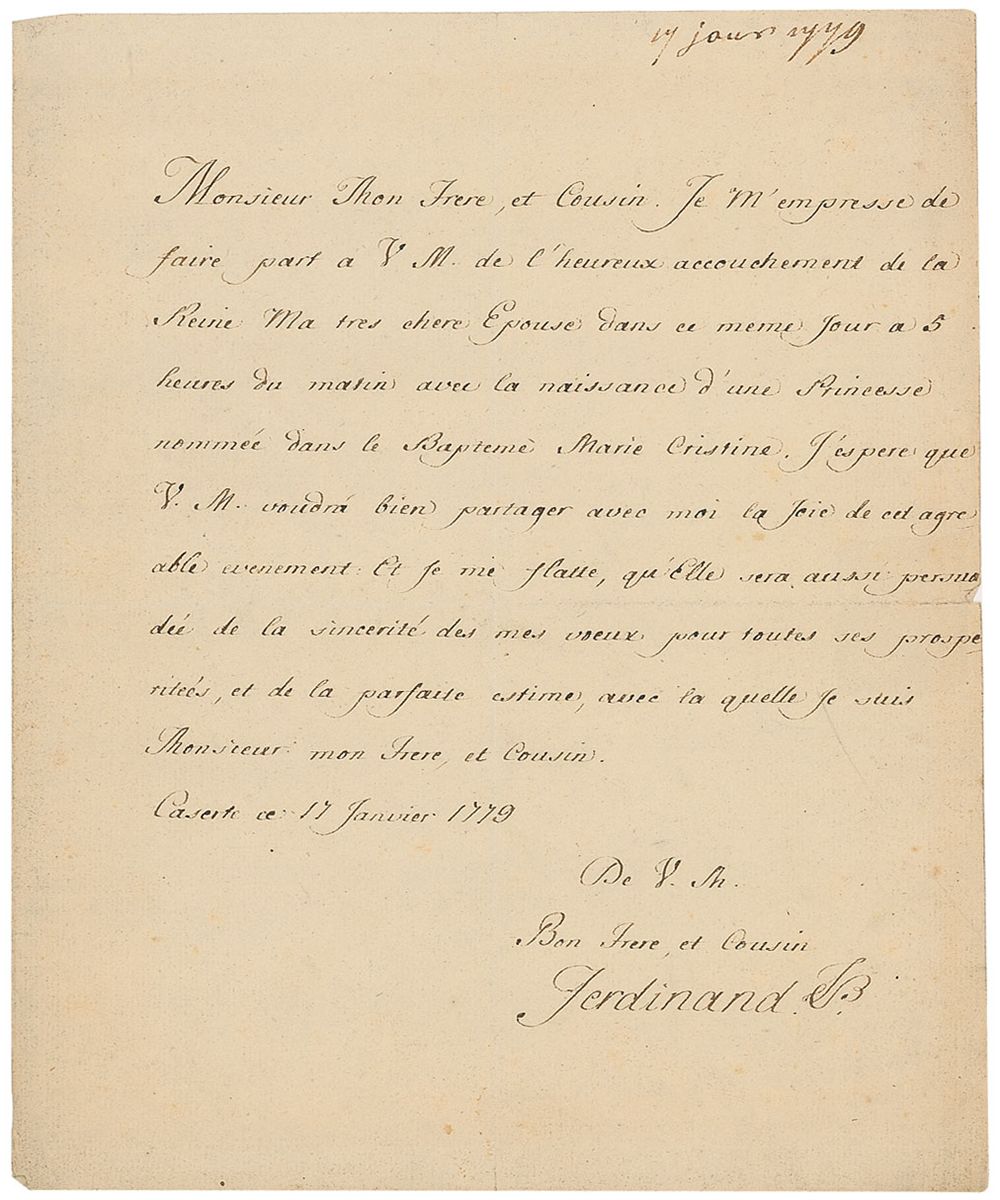 17 janv 1779
Monsieur Mon Frere, et Cousin. Je M'empresse de
faire part a V M. de l'heureux accouchement de la
Reine Ma tres chere Epouse dans ce meme Jour a 5
heures du matin avec la naissance d'une Princesse
nommée dans le Bapteme Marie Cristine. J'espere que
V. M. voudrá bien partager avec moi la Joie de cet agre
able evenement: Et Je me flatte, qu'Elle sera aussi persua
dée de la sincerité des mes voeux pour toutes ses prospe
riteés, et de la parfaite estime, avec la quelle Je suis
Monsieur mon Frere, et Cousin.
Caserte ce 17 Janvier 1779
De V. M.
Bon Frere, et Cousin
Ferdinand B.